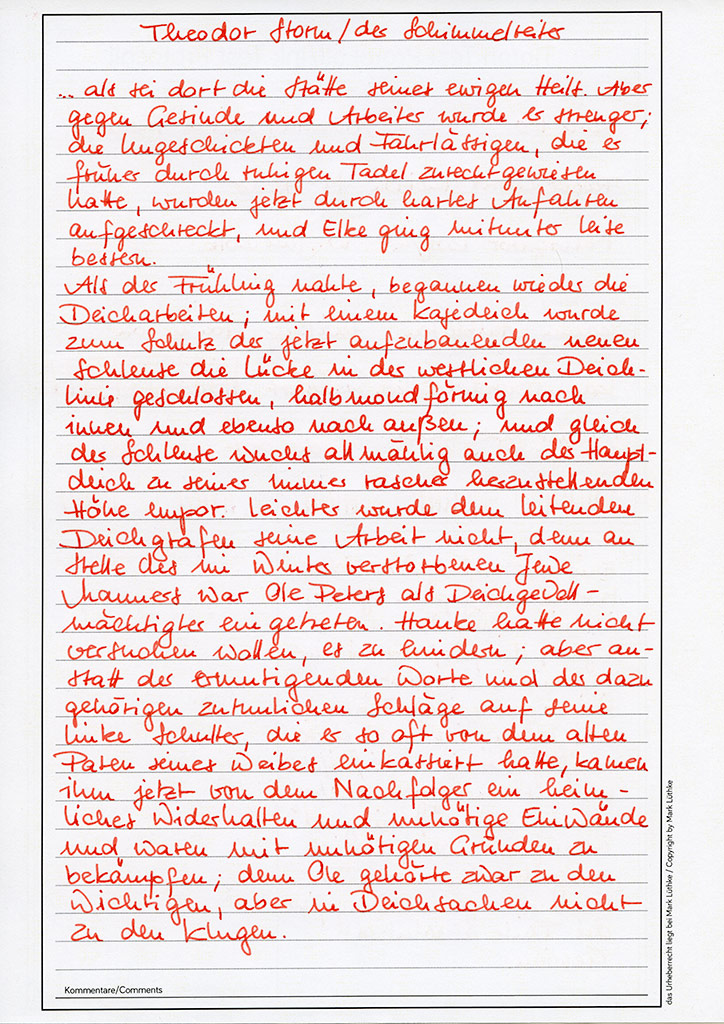 Theodor Storm / der Schimmelreiter
... als sei dort die Stätte seines ewigen Heils. Aber
gegen Gesinde und Arbeiter wurde er strenger;
die Ungeschickten und Fahrlässigen, die er
früher durch ruhigen Tadel zurechtgewiesen
hatte, wurden jetzt durch hartes Anfahren
aufgeschreckt, und Elke ging mitunter leise
bessern.
Als der Frühling nahte, begannen wieder die
Deicharbeiten; mit einem Kajedeich wurde
zum Schutz der jetzt aufzubauenden neuen
Schleuse die Lücke in der westlichen Deich-
linie geschlossen, halbmondförmig nach
innen und ebenso nach außen; und gleich
der Schleuse wuchs allmählig auch der Haupt-
deich zu seiner immer rascher herzustellenden
Höhe empor. Leichter wurde dem leitenden
Deichgrafen seine Arbeit nicht, denn an
Stelle des im Winter verstorbenen Jewe
Manners war Ole Peters als Deichgevoll-
mächtigter eingetreten. Hauke hatte nicht
versuchen wollen, es zu hindern; aber an-
statt der ermutigenden Worte und der dazu
gehörigen zutunlichen Schläge auf seine
linke Schulter, die er so oft von dem alten
Paten seines Weibes einkassiert hatte, kamen
ihm jetzt von dem Nachfolger ein heim-
liches Widerhalten und unnötige Einwände
und waren mit unnötigen Gründen zu
bekämpfen; denn Ole gehörte zwar zu den
Wichtigen, aber in Deichsachen nicht
zu den Klugen.
Kommentare/Comments
das Urheberrecht liegt bei Mark Lüthke / Copyright by Mark Lüthke